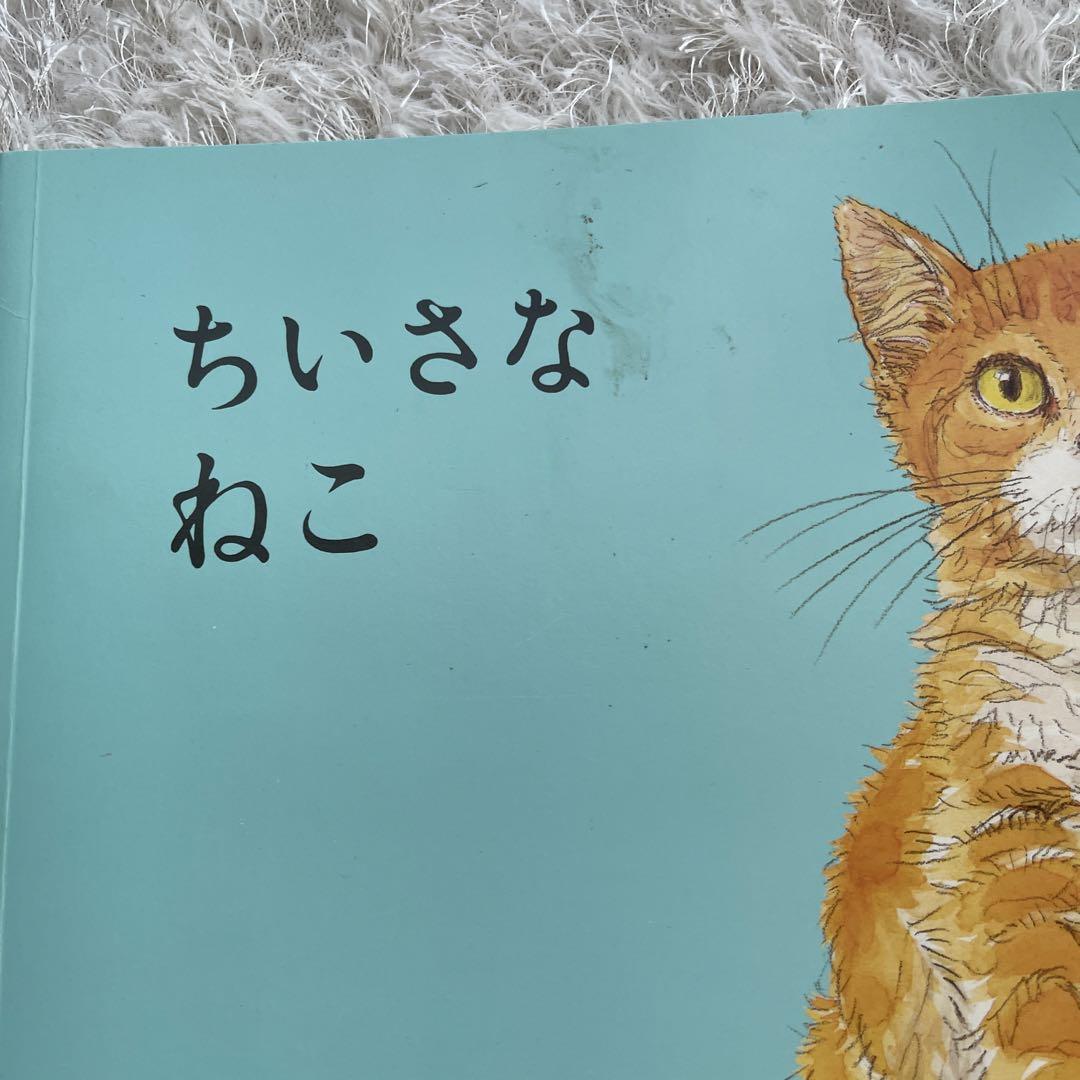 ちいさな
ねこ